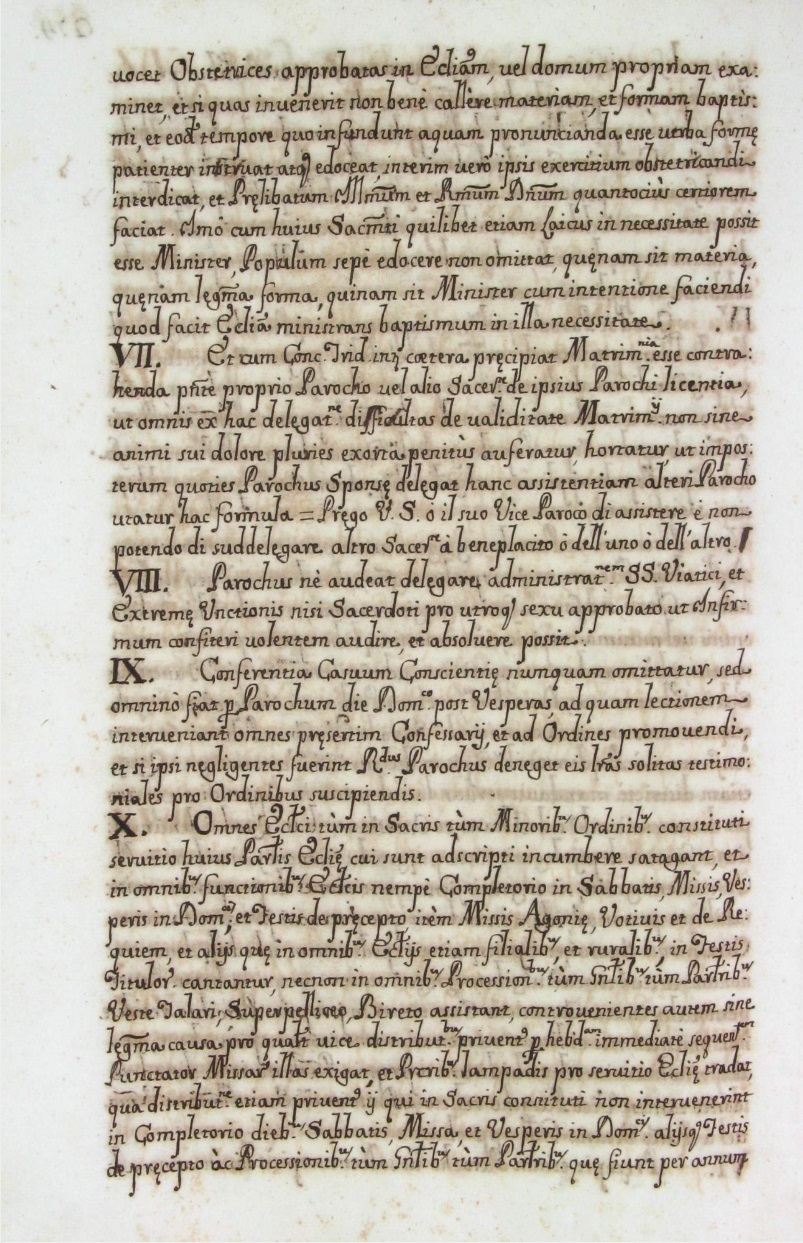 uocet Obstetrices approbatas in Ecliam, uel domum propriam exa:
minet, et si quas inuenerit non benè callère materiam, et formam baptis:
mi, et eod. tempore quo infundunt aquam pronuncianda esse uerba formę
patienter instruat atq; edoceat, interim uerò ipsis exercitium obstetricandi
interdicat, et Pręlibatum Illmum et Rmum Dnum quantociùs certiorem
faciat. Imò cum huius Sacmti quilibet etiam Laicus in necessitate possit
esse Minister, Populum sepè edocere non omittat, quęnam sit materia,
quęnam legma forma, quinam sit Minister cum intentione faciendi
quod facit Eclia ministrans baptismum in illa necessitate.
VII. Et cum Conc. Trid. inr cœtera pręcipiat Matrim.nia esse contra:
henda pnte proprio Parocho uel alio Sacer.te de ipsius Parochi licentia,
ut omnis ex hac delegat.ne difficultas de ualiditate Matrim.ij non sine
animi sui dolore pluries exorta penitùs auferatur, hortatur ut impos:
terum quoties Parochus Sponsę delegat hanc assistentiam alteri Parocho
utatur hac formula = Prego V. S. ò il suo Vice Paroco di assistere è non
potendo di suddelegare altro Sacer.te à beneplacito ò dell'uno ò dell'altro.
VIII. Parochus nè audeat delegare administrat.nem SS. Viatici, et
Extremę Unctionis nisi Sacerdoti pro utroq; sexu approbato ut Infir:
mum confiteri uolentem audire, et absoluere possit.
IX. Conferentia Casuum Conscientię numquam omittatur, sed
omninò fiat p Parochum die Dom.co post Vesperas, ad quam lectionem
interueniant omnes pręsertim Confessarij, et ad Ordines promouendi,
et si ipsi negligentes fuerint R.dus Parochus deneget eis lras solitas testimo:
niales pro Ordinibus suscipiendis.
X. Omnes Eclci tùm in Sacris tùm Minorib.s Ordinib.s constituti
seruitio huius Parlis Eclię cui sunt adscripti incumbere satagant, et
in omnib.s functionib.s Eclcis nempè Completorio in Sabbatis, Missis, Ves:
peris in Dom.cis, et Festis de pręcepto itèm Missis Agonię, Votiuis et de Re:
quiem, et alijs quę in omnib.s Eclijs etiam filialib.s, et ruralib.s, in Festis
Titulor. cantantur, necnon in omnib.s Procession.bus tùm Gnlib.s tùm Partrib.s
Veste Talari, Superpelliceo, Bireto assistant, controuenientes autem sine
legma causa pro qualt uice distribut.bus priuent.r p hebd.am immediatè sequent.em
Punctator Missar. illas exigat, et Prrib.s lampadis pro seruitio Eclię tradat,
qua distribut.ne etiam priuent.r ij qui in Sacris constituti non interuenerint
in Completorio dieb.s Sabbatis, Missa, et Vesperis in Dom.cis alijsq; Festis
de pręcepto àc Processionib.s tùm Gnlib.s tùm Partrib.s quę fiunt per annum